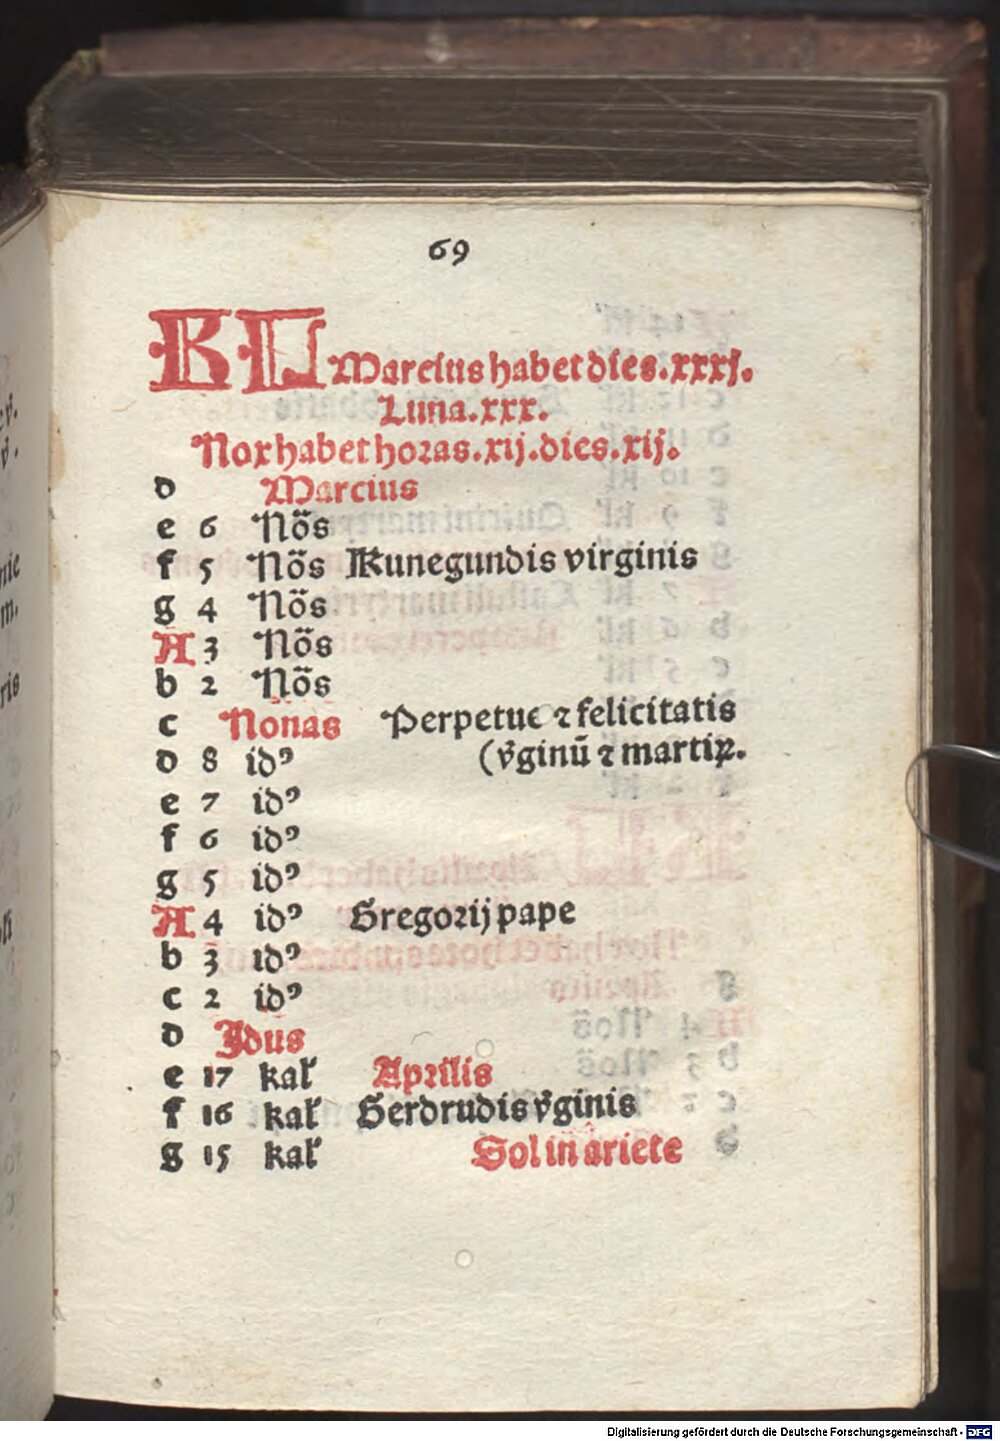 69
KL Marcius habet dies.xxxj.
Luna.xxx.
Nox habet horas.xij.dies.xij.
d Marcius
e 6 Nõs
f 5 Nõs Kunegundis virginis
g 4 Nõs
A 3 Nõs
b 2 Nõs
c Nonas Perpetue ⁊ felicitatis
d 8 idꝰ (v̄ginū ⁊ martiꝝ.
e 7 idꝰ
f 6 idꝰ
g 5 idꝰ
A 4 idꝰ Gregorij pape
b 3 idꝰ
c 2 idꝰ
d Idus
e 17 kal' Aprilis
f 16 kal' Gerdrudis v̄ginis
g 15 kal' Sol in ariete
Digitalisierung gefördert durch die Deutsche Forschungsgemeinschaft - DFG